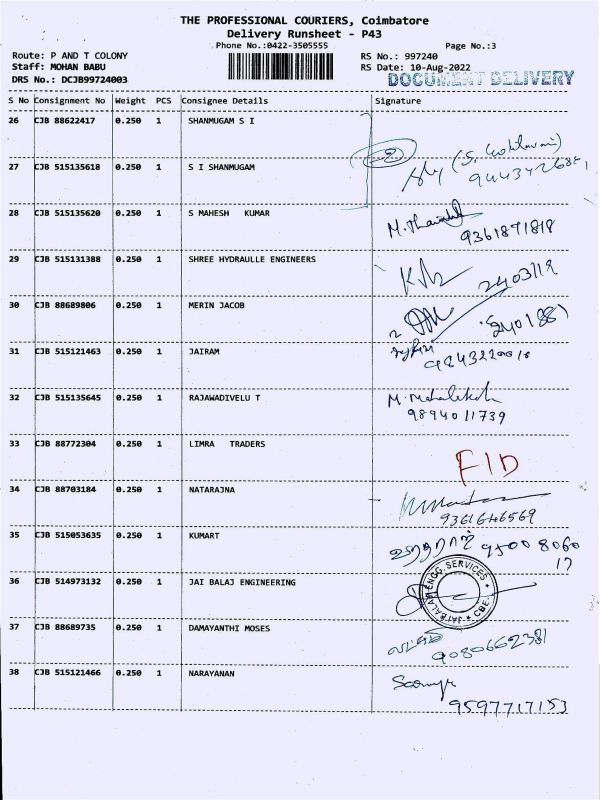 THE PROFESSIONAL COURIERS, Coimbatore
Delivery Runsheet - P43
Phone No.:0422-3505555
Page No.:3
Route: P AND T COLONY
RS No.: 997240
Staff: MOHAN BABU
RS Date: 10-Aug-2022
DRS No.: DCJB99724003
DOCUMENT DELIVERY
S No Consignment No Weight PCS Consignee Details Signature
26 CJB 88622417 0.250 1 SHANMUGAM S I
27 CJB 515135618 0.250 1 S I SHANMUGAM
28 CJB 515135620 0.250 1 S MAHESH KUMAR
9361871818
29 CJB 515131388 0.250 1 SHREE HYDRAULLE ENGINEERS
2403119
30 CJB 88689806 0.250 1 MERIN JACOB
31 CJB 515121463 0.250 1 JAIRAM
32 CJB 515135645 0.250 1 RAJAWADIVELU T
9894011739
33 CJB 88772304 0.250 1 LIMRA TRADERS
FID
34 CJB 88703184 0.250 1 NATARAJNA
9361646569
35 CJB 515053635 0.250 1 KUMART
95008060
17
36 CJB 514973132 0.250 1 JAI BALAJ ENGINEERING
JAI BALAJI ENGG. SERVICES * CBE. *
37 CJB 88689735 0.250 1 DAMAYANTHI MOSES
9080662381
38 CJB 515121466 0.250 1 NARAYANAN
9597717153